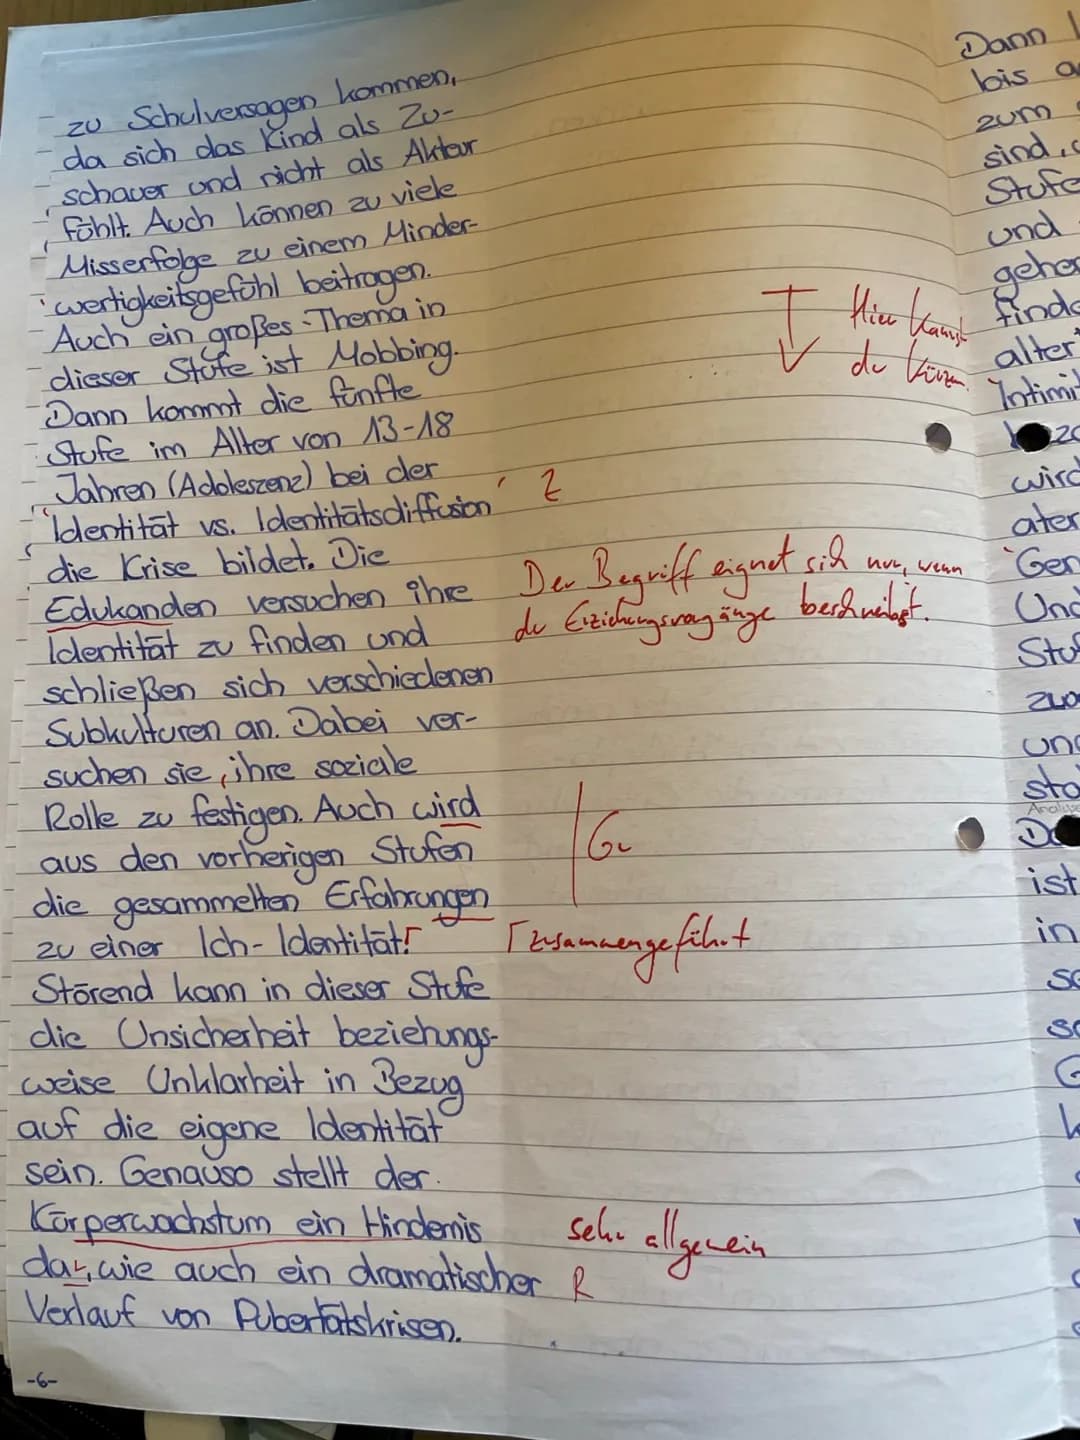 zu Schulversagen kommen,
da sich das Kind als Zu-
schauer und nicht als Akteur
fühlt. Auch können zu viele
Misserfolge zu einem Minder-
wertigkeitsgefühl beitragen.
Auch ein großes Thema in
dieser Stufe ist Mobbing.
Hier kannst
du kürzen.
Dann kommt die fünfte
Stufe im Alter von 13-18
Jahren (Adoleszenz) bei der
"Identität vs. Identitätsdiffusion' Z
die Krise bildet. Die
Edukanden versuchen ihre
Der Begriff eignet sich nur, wenn
du Erziehungsvorgänge beschreibst.
Identität zu finden und
schließen sich verschiedenen
Subkulturen an. Dabei ver-
suchen sie, ihre soziale
Rolle zu festigen. Auch wird
aus den vorherigen Stufen
Gr
die gesammelten Erfahrungen
zu einer Ich-Identität.Γ
Γ zusammengeführt
Störend kann in dieser Stufe
die Unsicherheit beziehungs-
weise Unklarheit in Bezug
auf die eigene Identität
sein. Genauso stellt der
Körperwachstum ein Hindernis
sehr allgemein
dar, wie auch ein dramatischer R
Verlauf von Pubertätskrisen.
-6-
Dann
bis
zum
sind,
Stufe
und
alter
wird
Und
ist
in